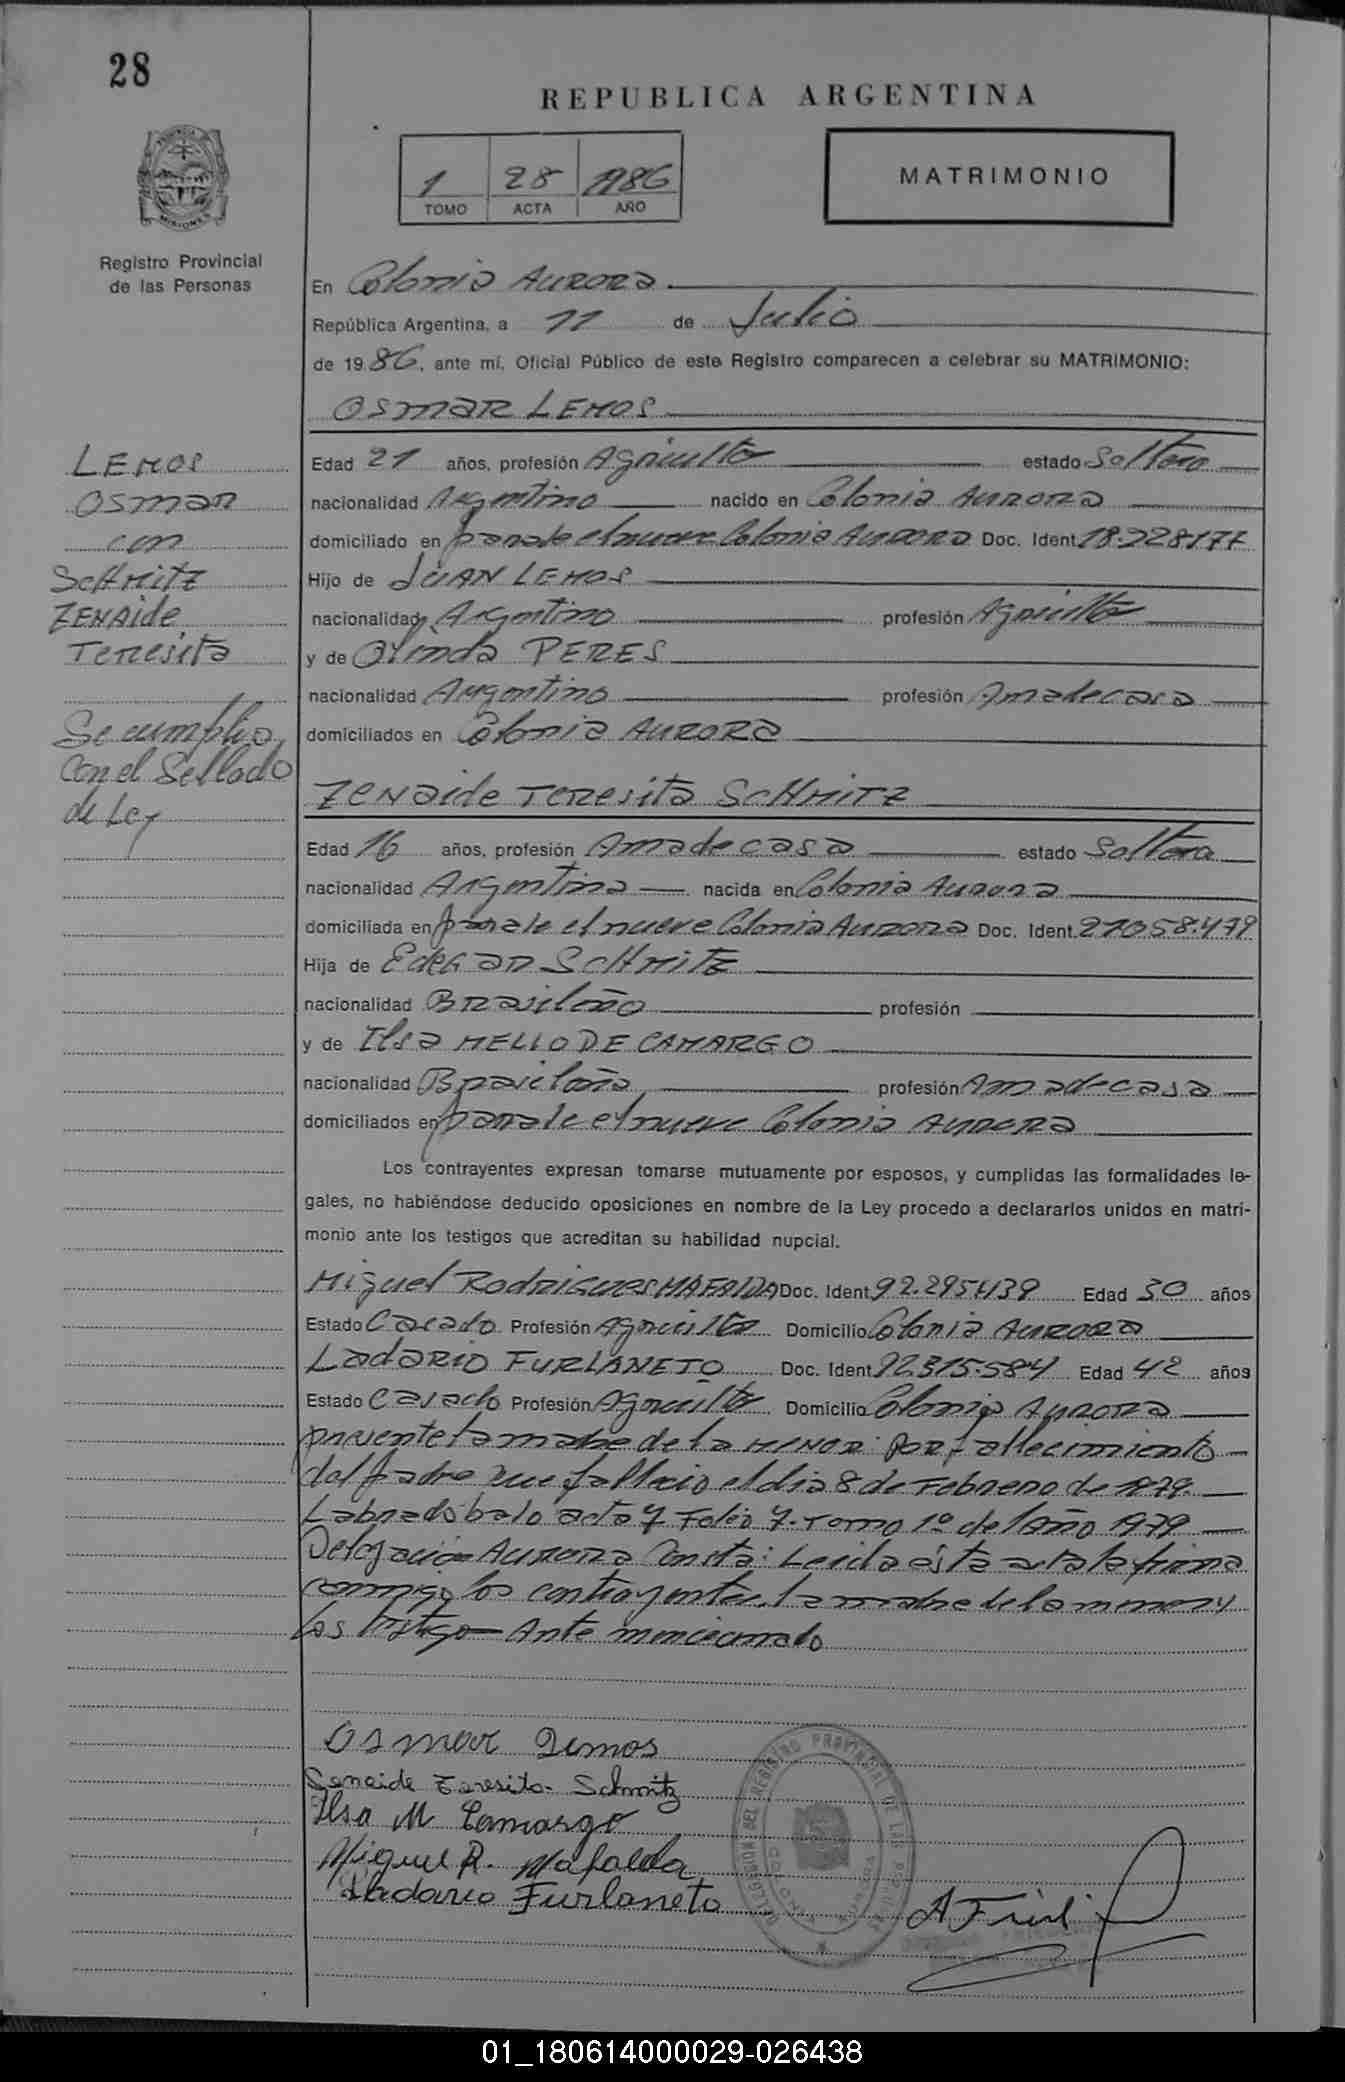 28
REPUBLICA ARGENTINA
1 28 1986
TOMO ACTA AÑO
MATRIMONIO
PROVINCIA DE MISIONES
Registro Provincial
de las Personas
En Colonia Aurora
República Argentina, a 11 de Julio
de 1986, ante mí, Oficial Público de este Registro comparecen a celebrar su MATRIMONIO:
OSMAR LEMOS
LEMOS
OSMAR
con
SCHMITZ
ZENAIDE
Teresita
Se cumplio
con el Sellado
de Ley
Edad 21 años, profesión Agricultor estado Soltero
nacionalidad Argentino nacido en Colonia Aurora
domiciliado en paraje el nueve Colonia Aurora Doc. Ident. 18.228177
Hijo de JUAN LEMOS
nacionalidad Argentino profesión Agricultor
y de Olinda PERES
nacionalidad Argentina profesión Ama de casa
domiciliados en Colonia Aurora
ZENAIDE TERESITA SCHMITZ
Edad 16 años, profesión Ama de casa estado Soltera
nacionalidad Argentina nacida en Colonia Aurora
domiciliada en paraje el nueve Colonia Aurora Doc. Ident. 21058.479
Hija de Edegar SCHMITZ
nacionalidad Brasileño profesión
y de Ilsa MELLO DE CAMARGO
nacionalidad Brasileña profesión Ama de casa
domiciliados en paraje el nueve Colonia Aurora
Los contrayentes expresan tomarse mutuamente por esposos, y cumplidas las formalidades le-
gales, no habiéndose deducido oposiciones en nombre de la Ley procedo a declararlos unidos en matri-
monio ante los testigos que acreditan su habilidad nupcial.
Miguel Rodrigues MAFALDA Doc. Ident. 92.295439 Edad 30 años
Estado Casado Profesión Agricultor Domicilio Colonia Aurora
LADARIO FURLANETO Doc. Ident. 92315.584 Edad 42 años
Estado Casado Profesión Agricultor Domicilio Colonia Aurora
presente la madre de la MENOR por fallecimiento
del padre que fallecio el dia 8 de Febrero de 1979.
Labrado bajo acta 7 Folio 7. Tomo 1º del Año 1979
Delegacion Aurora Consta: Leida esta acta la firma
conmigo los contrayentes, la madre de la menor y
los testigo Ante mencionado
Osmar Lemos
Senaide Teresita Schmitz
Ilsa M Camargo
Miguel R. Mafalda
Ladario Furlaneto
DELEGACION DEL REGISTRO PROVINCIAL DE LAS PERSONAS
01_180614000029-026438